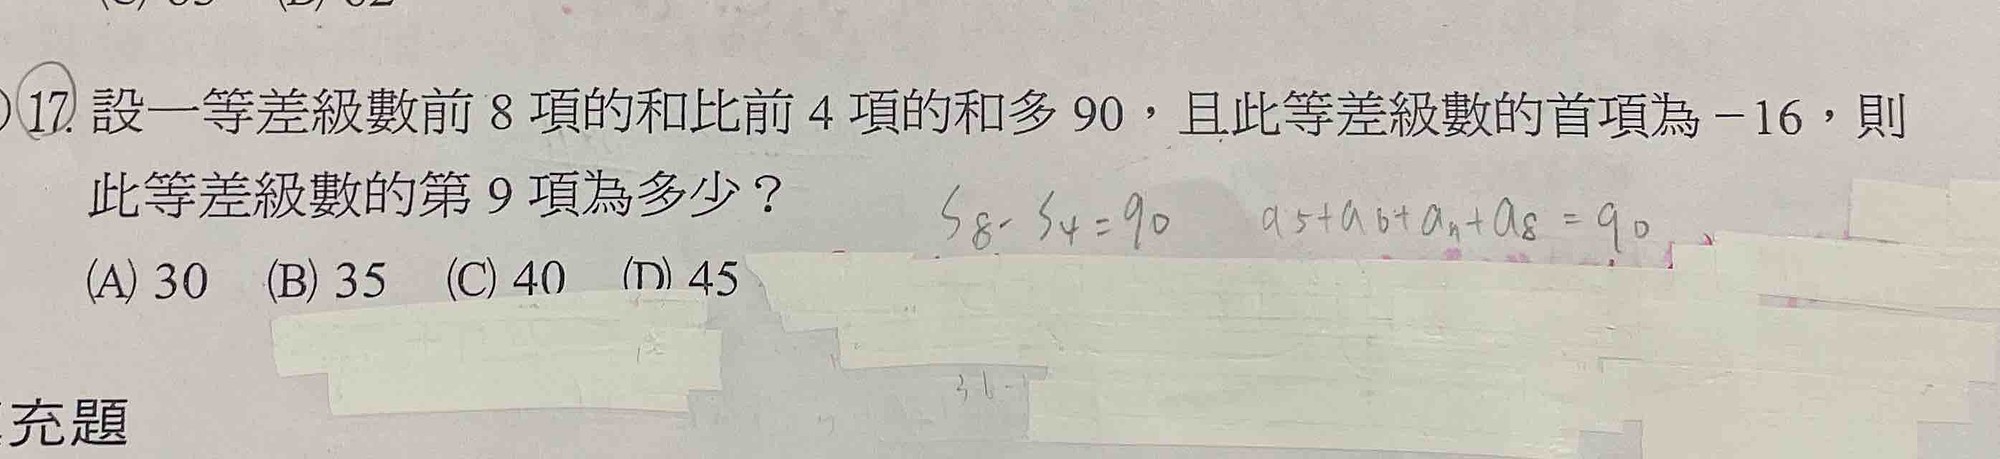 17. 設一等差級數前 8 項的和比前 4 項的和多 90，且此等差級數的首項為 -16，則
此等差級數的第 9 項為多少？
S8 - S4 = 90 a5 + a6 + a7 + a8 = 90
(A) 30 (B) 35 (C) 40 (D) 45
充題